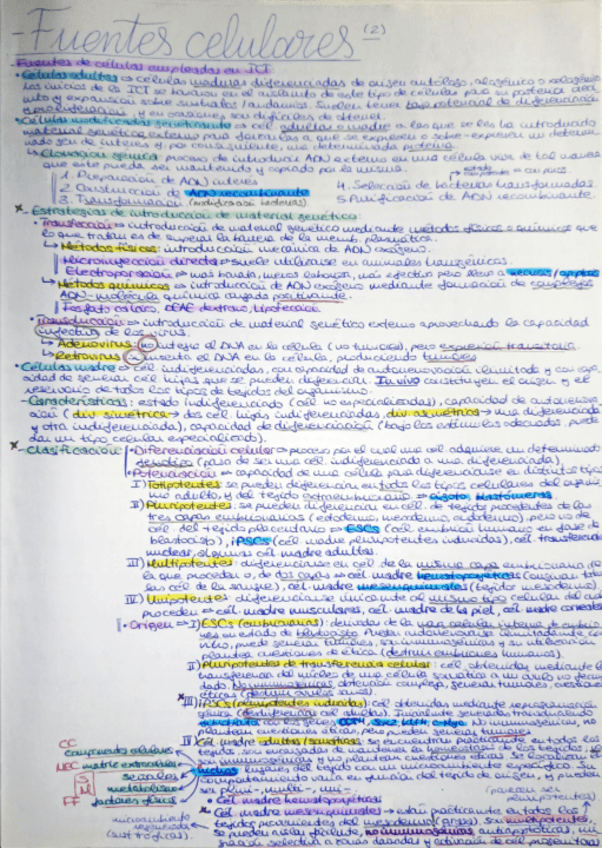 - Fuentes celulares (2)
- Fuentes de células empleadas en ICT
• Células adultas ⇒ células maduras diferenciadas de origen autólogo, alogénico o xelogénico
Los inicios de la ICT se basaban en el aislamiento de este tipo de células para su posterior
y expansión sobre sustratos/andamios. Suelen tener bajo potencial de diferenciación
y proliferación, y en ocasiones son difíciles de obtener.
• Células modificadas genéticamente ⇒ cel. adultas o madre a las que se les ha introducido
material genético externo para que expresen o sobre-expresen un determi
nado gen de interés y, por consiguiente, una determinada proteína.
↳ Clonación génica: proceso de introducir ADN externo en una célula viva de tal manera
que este pueda ser mantenido y copiado por la misma.
1. Preparación de ADN interés
2. Construcción de ADN recombinante
3. Transformación (modificación bacterias)
4. Selección de bacterias transformadas.
5. Purificación de ADN recombinante.
- Estrategias de introducción de material genético:
• Transfección ⇒ introducción de material genético mediante métodos físicos o químicos que
lo que tratan es de superar la barrera de la memb. plasmática.
↳ Métodos físicos: introducción mecánica de ADN exógeno.
Microinyección directa ⇒ suele utilizarse en animales transgénicos.
Electroporación ⇒ más barata, menos laboriosa, más efectiva pero lleva a necrosis/apoptosis
↳ Métodos químicos ⇒ introducción de ADN exógeno mediante formación de complejos
ADN-molécula química cargada positivamente.
Fosfato cálcico, DEAE dextrano, lipofección.
• Transducción ⇒ introducción de material genético externo aprovechando la capacidad
infectiva de los virus.
↳ Adenovirus: no integra el DNA en la célula (no tumores), pero expresión transitoria.
↳ Retrovirus: inserta el DNA en la célula, produciendo tumores
• Células madre ⇒ cel. indiferenciadas, con capacidad de autorrenovación ilimitada y con capa
cidad de generar cel. hijas que se pueden diferenciar. In vivo constituyen el origen y el
reservorio de todos los tipos de tejidos del organismo.
- Características: estado indiferenciado (cel. no especializadas), capacidad de autorrenova
ción (div. simétrica → dos cel. hijas indiferenciadas, div. asimétrica → una diferenciada
y otra indiferenciada), capacidad de diferenciación (bajo los estímulos adecuados, puede
dar un tipo celular especializado).
- Clasificación
• Diferenciación celular ⇒ proceso por el cual una cel. adquiere un determinado
fenotipo (pasa de ser una cel. indiferenciada a una diferenciada).
• Potenciación ⇒ capacidad de una célula para diferenciarse en distintos tipos
I) Totipotentes: se pueden diferenciar en todos los tipos celulares del organis
mo adulto, y del tejido extraembrionario ⇒ cigoto, blastómeros.
II) Pluripotentes: se pueden diferenciar en cel. de tejidos procedentes de las
tres capas embrionarias (ectodermo, mesodermo, endodermo), pero no de
cel. del tejido placentario ⇒ ESCs (cel. embrión humano en fase de
blastocisto), iPSCs (cel. madre pluripotentes inducidas), cel. transferencia
nuclear, algunas cel. madre adultas.
III) Multipotentes: diferenciarse en cel. de la misma capa embrionaria de
la que proceden o, de dos capas ⇒ cel. madre hematopoyéticas
las cel. de la sangre), cel. madre mesenquimales (tejidos mesodermo).
IV) Unipotentes: diferenciarse únicamente al mismo tipo celular del que
proceden ⇒ cel. madre musculares, cel. madre de la piel, cel. madre corneales
• Origen ⇒ I) ESCs (embrionarias): derivadas de la masa celular interna de embrio
nes en estado de blastocisto. Pueden autorrenovarse ilimitadamente in
vitro, puede generar tumores, son inmunogénicas y su utilización
plantea cuestiones de ética (destruir embriones humanos).
II) Pluripotentes de transferencia celular: cel. obtenidas mediante la
transferencia del núcleo de una célula somática a un óvulo no fecun
dado. No inmunogénicas, obtención compleja, generar tumores, cuestiones
éticas (destruir óvulos sanos).
III) iPSCs (pluripotentes inducidas): cel. obtenidas mediante reprogramación
génica (desdiferenciación cel. adultas). Inicialmente generadas
con los genes Oct4, Sox2, Klf4, c-Myc. No inmunogénicas, no
plantean cuestiones éticas, pero pueden generar tumores
IV) Cel. madre adultas/somáticas: se encuentran prácticamente en todos los
tejidos, son encargadas de mantener la homeostasis de los tejidos,
son inmunogénicas y no plantean cuestiones éticas. Se localizan en
nichos, lugares del tejido con un microambiente específico. Su
comportamiento varía en función del tejido de origen, y pueden
ser pluri-, multi-, uni-.
CC componentes celulares
MEC matriz extracelular
S señales
M metabolismo
FF factores físicos
microambiente
(sust. tróficas).
(pueden ser
pluripotentes)
• Cel. madre hematopoyéticas
• Cel. madre mesenquimales ⇒ están prácticamente en todos los
tejidos procedentes del mesodermo (grasa). Son multipotentes,
se pueden aislar fácilmente, no inmunogénicas, antiapoptóticas, mi
gración selectiva a zonas dañadas y